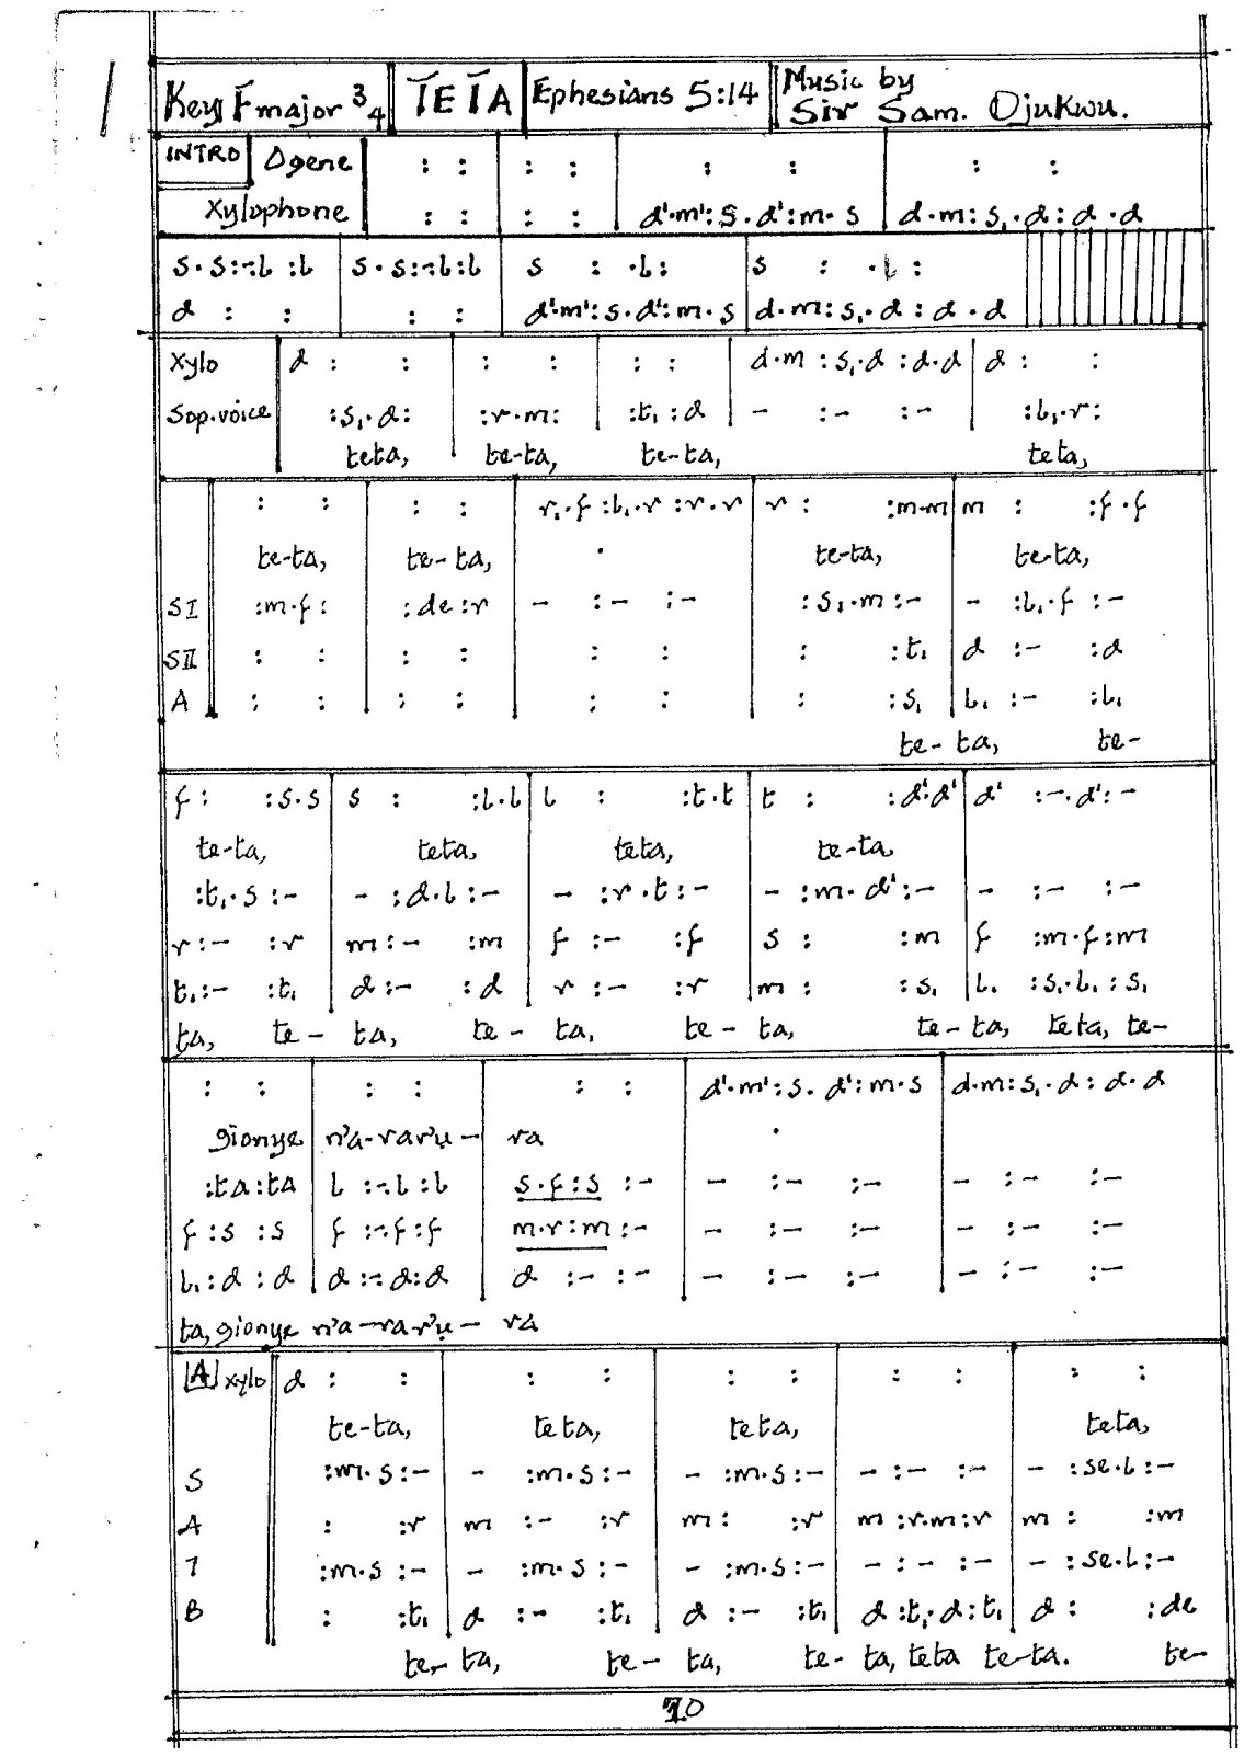 1
Key F major 3/4 | TETA | Ephesians 5:14 | Music by Sir Sam. Ojukwu.
INTRO | Ogene | : : | : : | : : | : :
Xylophone | : : | : : | d'.m':s.d':m.s | d.m:s₁.d:d.d
s.s:-.l:l | s.s:-.l:l | s : .l: | s : .l:
d : : | : : | d'.m':s.d':m.s | d.m:s₁.d:d.d
Xylo | d : : | : : | : : | d.m:s₁.d:d.d | d : :
Sop.voice | :s₁.d: | :r.m: | :t₁:d | - :- :- | :l₁.r:
teta, te-ta, te-ta, teta,
: : | : : | r₁.f:l₁.r:r.r | r : :m.m | m : :f.f
te-ta, te-ta, te-ta, te-ta,
SI | :m.f: | :de:r | - :- :- | :s₁.m:- | - :l₁.f:-
SII | : : | : : | : : | : :t₁ | d :- :d
A | : : | : : | : : | : :s₁ | l₁ :- :l₁
te-ta, te-
f : :s.s | s : :l.l | l : :t.t | t : :d'.d' | d' :-.d':-
te-ta, teta, teta, te-ta
:t₁.s:- | - :d.l:- | - :r.t:- | - :m.d':- | - :- :-
r:- :r | m:- :m | f :- :f | s : :m | f :m.f:m
t₁:- :t₁ | d:- :d | r :- :r | m : :s₁ | l₁ :s₁.l₁:s₁
ta, te-ta, te-ta, te-ta, te-ta, teta, te-
: : | : : | : : | d'.m':s.d':m.s | d.m:s₁.d:d.d
gionye n'a-rarụ-ra
:ta:ta | l :-.l:l | s.f:s :- | - :- :- | - :- :-
f:s:s | f :-.f:f | m.r:m:- | - :- :- | - :- :-
l₁:d:d | d:-.d:d | d :- :- | - :- :- | - :- :-
ta, gionye n'a-rarụ-ra
A xylo | d : : | : : | : : | : : | : :
te-ta, teta, teta, teta,
S | :m.s:- | - :m.s:- | - :m.s:- | - :- :- | - :se.l:-
A | : :r | m :- :r | m : :r | m :r.m:r | m : :m
T | :m.s:- | - :m.s:- | - :m.s:- | - :- :- | - :se.l:-
B | : :t₁ | d :- :t₁ | d :- :t₁ | d :t₁.d:t₁ | d : :de
te-ta, te-ta, te-ta, teta te-ta. te-